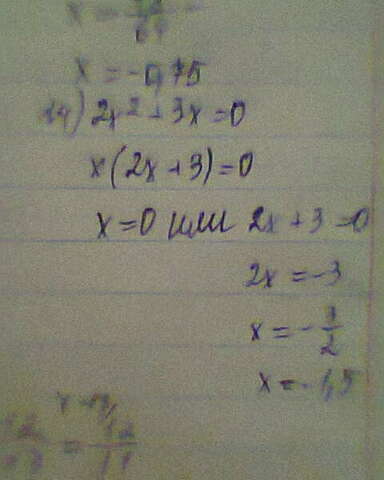 x = -0,75
14) 2x² + 3x = 0
x(2x + 3) = 0
x = 0 или 2x + 3 = 0
2x = -3
x = -3/2
x = -1,5